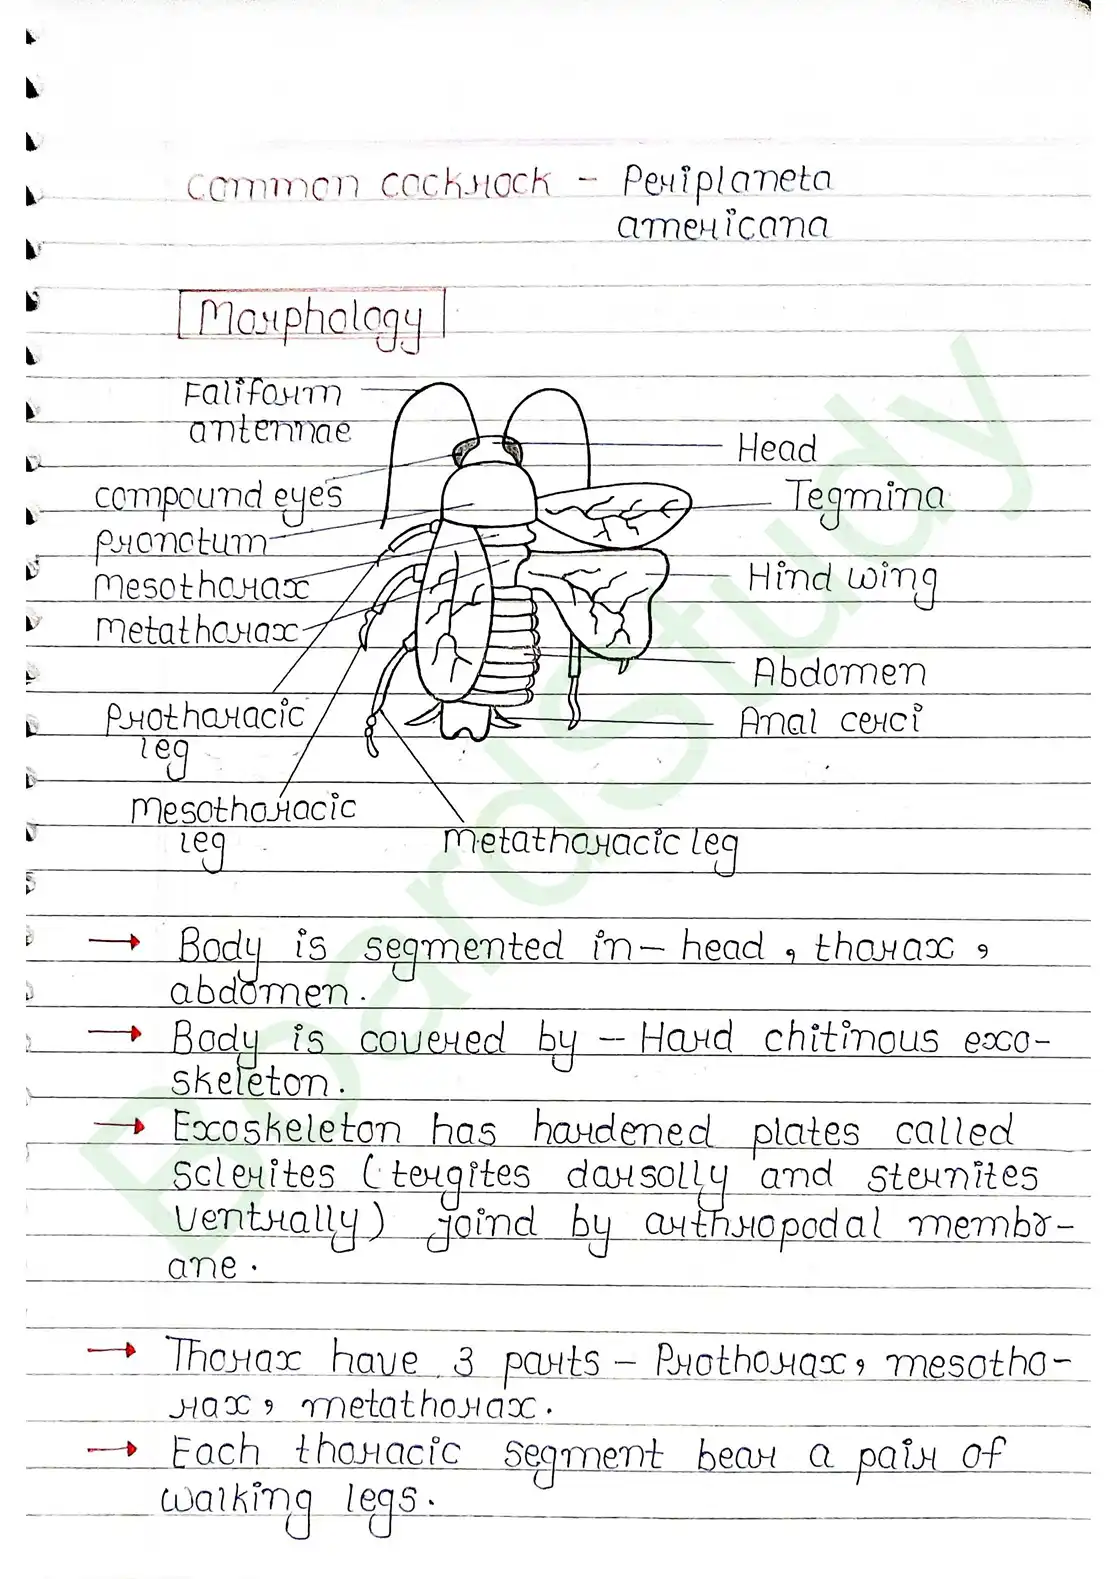 common cockrock - Periplaneta
americana
Morphology
Faliform
antennae
Head
compound eyes
Tegmina
pronotum
mesothorax
Hind wing
metathorax
Abdomen
Prothoracic
leg
Anal cerci
Mesothoracic
leg
Metathoracic leg
→ Body is segmented in - head, thorax,
abdomen.
→ Body is covered by - Hard chitinous exo-
skeleton.
→ Exoskeleton has hardened plates called
sclerites (tergites dorsolly and sternites
ventrally) joind by arthropodal membr-
ane.
→ Thorax have 3 parts - Prothorax, mesotho-
rax, metathorax.
→ Each thoracic segment bear a pair of
walking legs.
BoardStudy